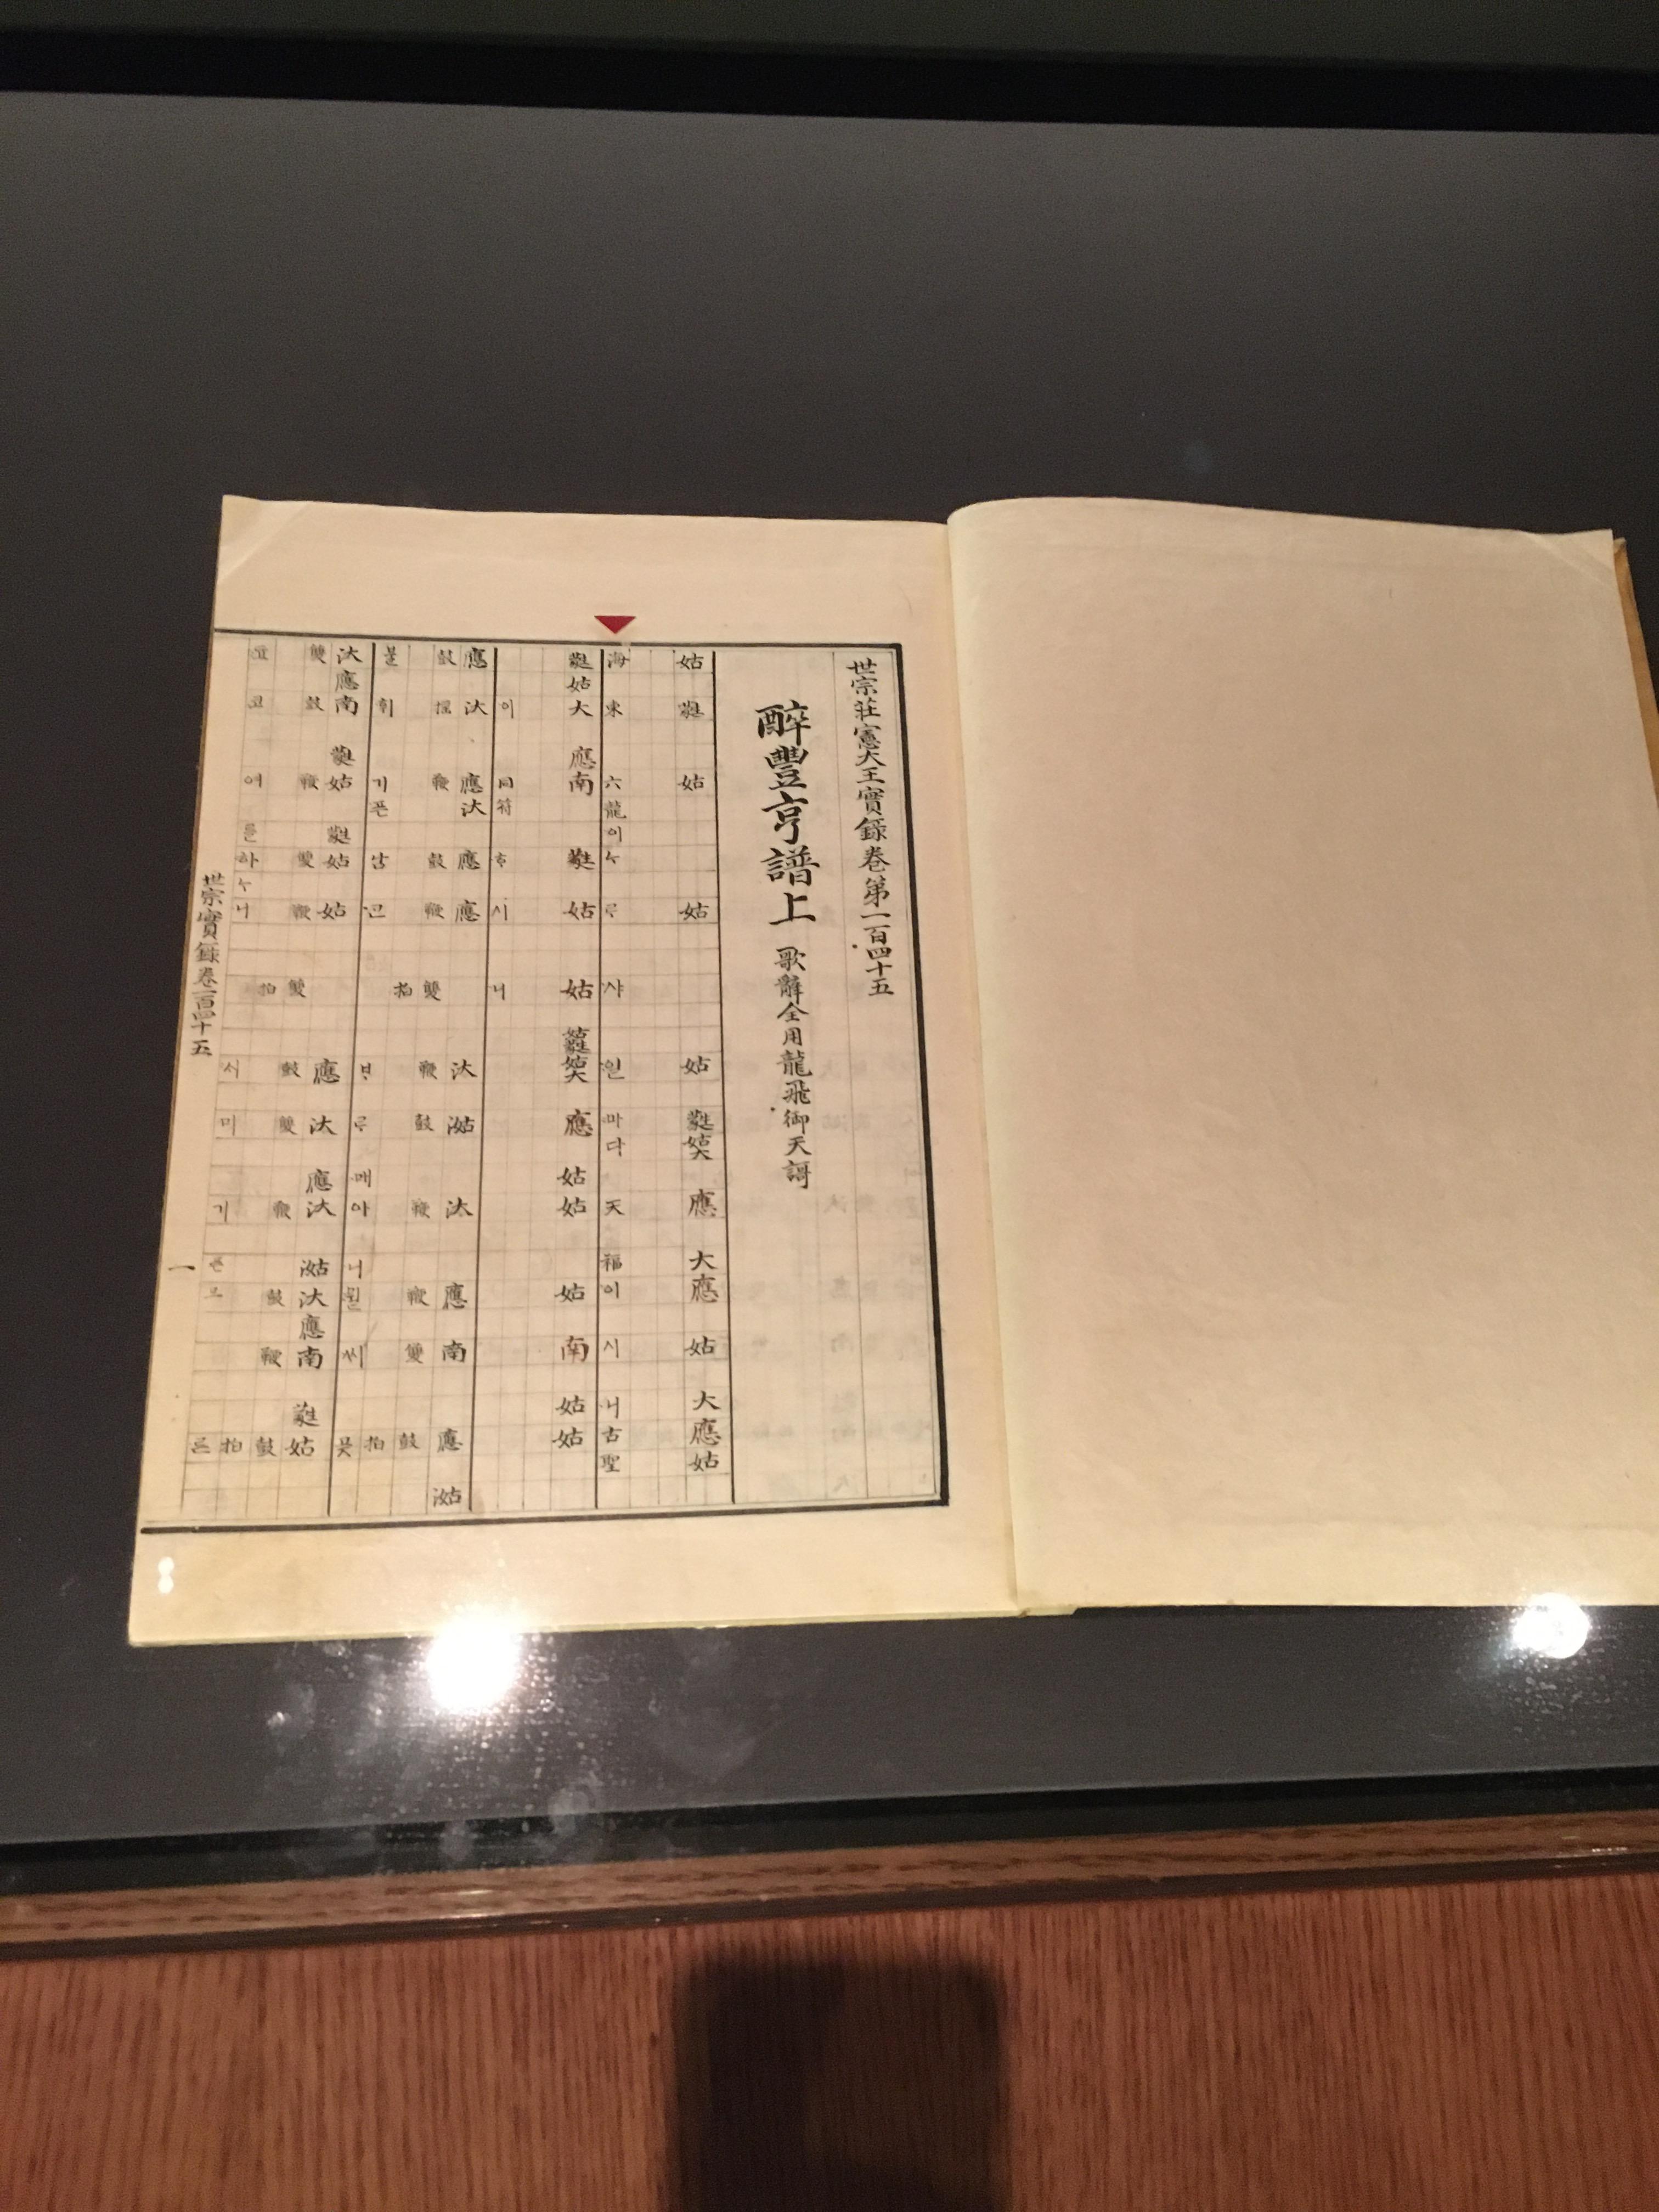 世宗莊憲大王實錄卷第一百四十五
醉豐亨譜上 歌辭全用龍飛御天謌
姑 蕤 姑 姑 姑 蕤 應 大 應 姑 大 應 姑
海東六龍이ᄂᆞᄅᆞ샤일마다天福이시니古聖
蕤 姑 大 應 南 蕤 姑 姑 應 姑 姑 姑 南 姑 姑
이同符ᄒᆞ시니
應 汰 應 汰 應 應 汰 㴌 汰 應 南 應 㴌
鼓 鞭 鼓 鞭 雙 鞭 鼓 鞭 鞭 雙 鼓
拍 拍
불휘기픈남ᄀᆞᆫᄇᆞᄅᆞ매아니뮐ᄊᆡ곳
汰 應 南 蕤 姑 蕤 姑 姑 應 汰 應 汰 㴌 汰 應 南 蕤 姑
雙 鼓 鞭 雙 鞭 雙 鼓 雙 鞭 鼓 鞭 鼓
拍 拍
코여름하ᄂᆞ니ᄉᆡ미기픈므른
世宗實錄卷一百四十五 一